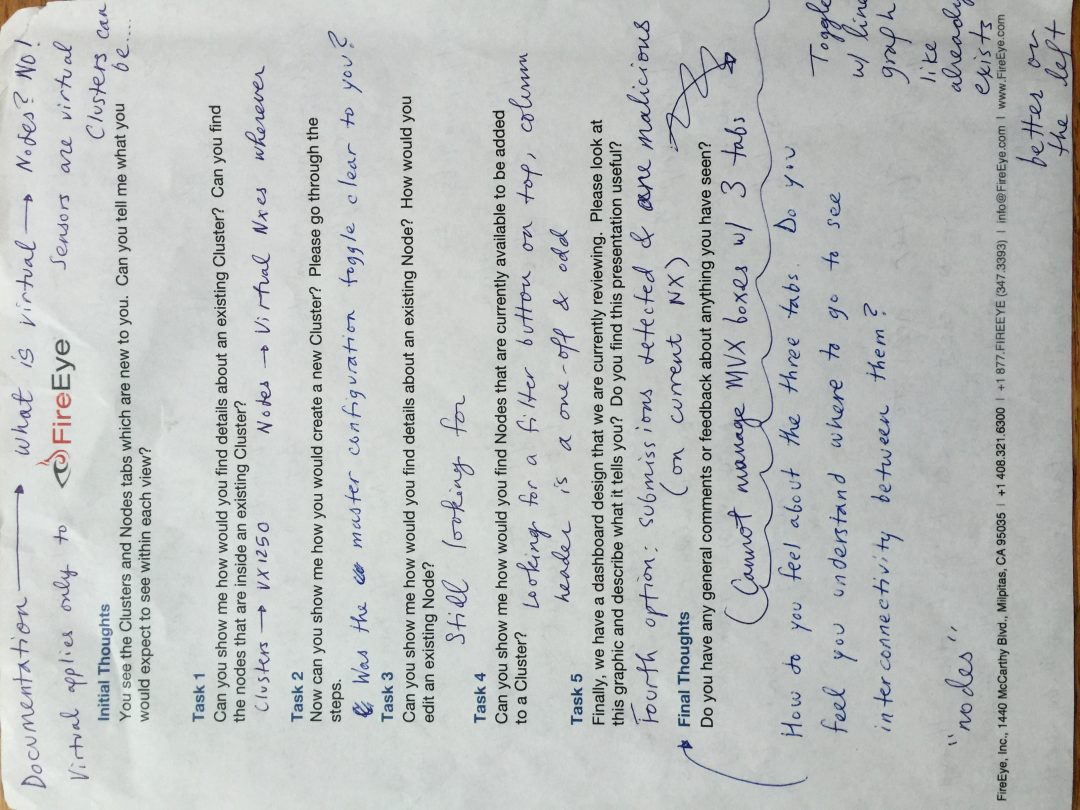 Documentation → what is virtual → Nodes? No!
Virtual applies only to Sensors are virtual
Clusters can
be....
FireEye
Initial Thoughts
You see the Clusters and Nodes tabs which are new to you. Can you tell me what you
would expect to see within each view?
Task 1
Can you show me how would you find details about an existing Cluster? Can you find
the nodes that are inside an existing Cluster?
Clusters → VX1250 Nodes → Virtual Nxes wherever
Task 2
Now can you show me how you would create a new Cluster? Please go through the
steps.
Was the master configuration toggle clear to you?
Task 3
Can you show me how would you find details about an existing Node? How would you
edit an existing Node?
Still looking for
Task 4
Can you show me how would you find Nodes that are currently available to be added
to a Cluster?
Looking for a filter button on top, column
header is a one-off & odd
Task 5
Finally, we have a dashboard design that we are currently reviewing. Please look at
this graphic and describe what it tells you? Do you find this presentation useful?
Fourth option: submissions detected & are malicious
(on current NX)
Final Thoughts
Do you have any general comments or feedback about anything you have seen?
(Cannot manage MVX boxes w/ 3 tabs
How do you feel about the three tabs. Do you
feel you understand where to go to see
interconnectivity between them?
Toggle
w/ line
graph
like
already
exists
"nodes"
FireEye, Inc., 1440 McCarthy Blvd., Milpitas, CA 95035 | +1 408.321.6300 | +1 877.FIREEYE (347.3393) | info@FireEye.com | www.FireEye.com
better on
the left